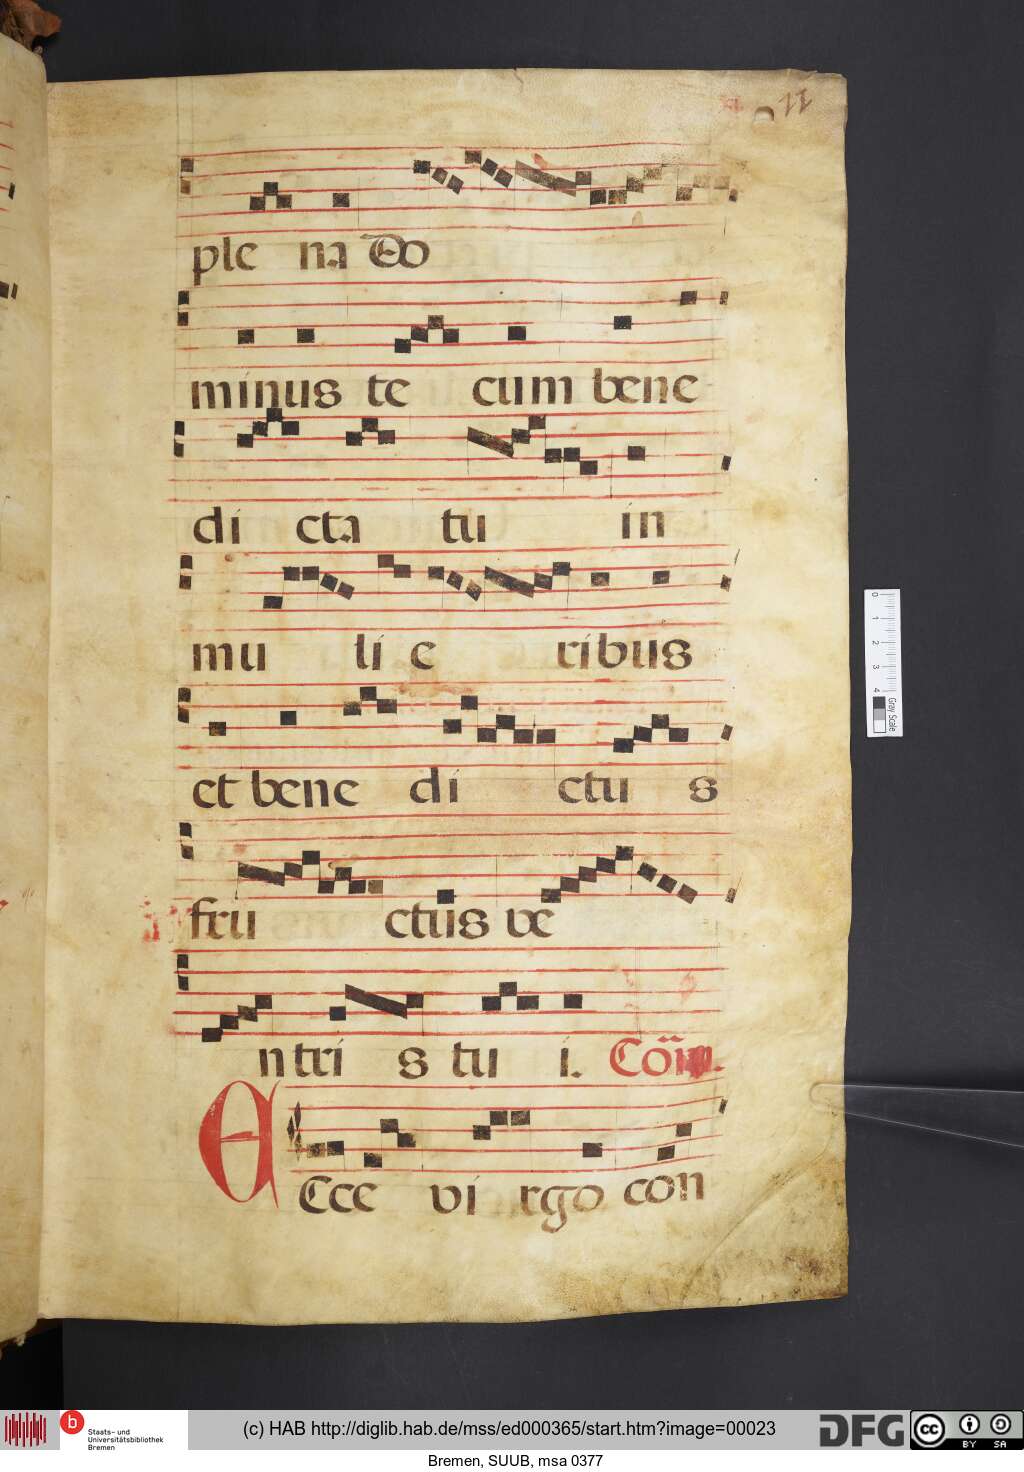 11
ple na Do
minus te cum bene
di cta tu in
mu li e ribus
et bene di ctu s
fru ctus ve
ntri s tu i. Cõm.
Ecce vi rgo con
0 1 2 3 4 Gray Scale
b Staats- und
Universitätsbibliothek
Bremen
(c) HAB http://diglib.hab.de/mss/ed000365/start.htm?image=00023
DFG
cc BY SA
Bremen, SUUB, msa 0377